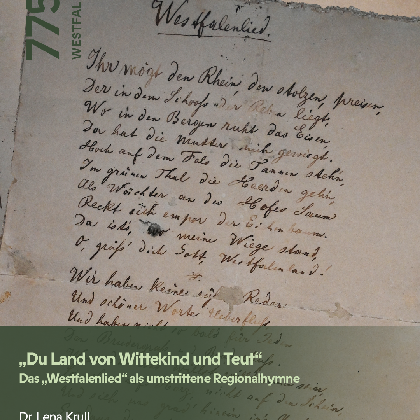 775
WESTFAL
Westfalenlied.
Ihr mögt den Rhein den stolzen, preisen,
Der in dem Schooß der Reben liegt,
Wo in den Bergen ruht das Eisen
Da hat die Mutter mich gewiegt.
Hoch auf dem Fels die Tannen stehn,
Im grünen Thal die Heerden gehn,
Als Wächter an des Hofes Saum
Reckt sich empor der Eichenbaum.
Da ists, wo meine Wiege stand,
O, grüß' dich Gott, Westfalenland!
Wir haben keine Reden
Und schöner Worte
Und haben nicht
„Du Land von Wittekind und Teut“
Das „Westfalenlied“ als umstrittene Regionalhymne
Dr. Lena Krull